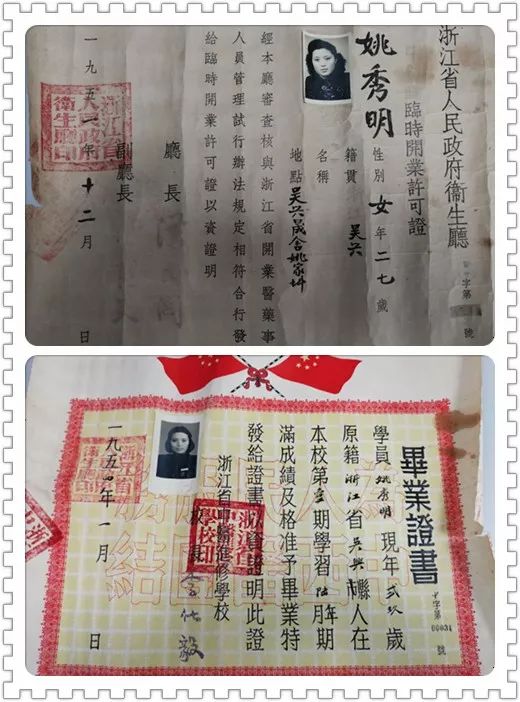 浙江省人民政府衞生廳
臨時開業許可證
字第 號
姚秀明 性別 女 年二七歲
籍貫 吳興
名稱
地點 吳興晟舍姚家圿
經本廳審查核與浙江省開業醫藥事
人員管理試行辦法規定相符合行發
給臨時開業許可證以資證明
廳長
副廳長
一九五一年十二月 日
浙江省人民政府衞生廳印
畢業證書
中字第00031號
學員姚秀明現年弍玖歲
原籍浙江省吳興市縣人在
本校第壹期學習 年期
滿成績及格准予畢業特
發給證書以資證明此證
浙江省中醫進修學校
校長 李 毅
一九五四年一月 日